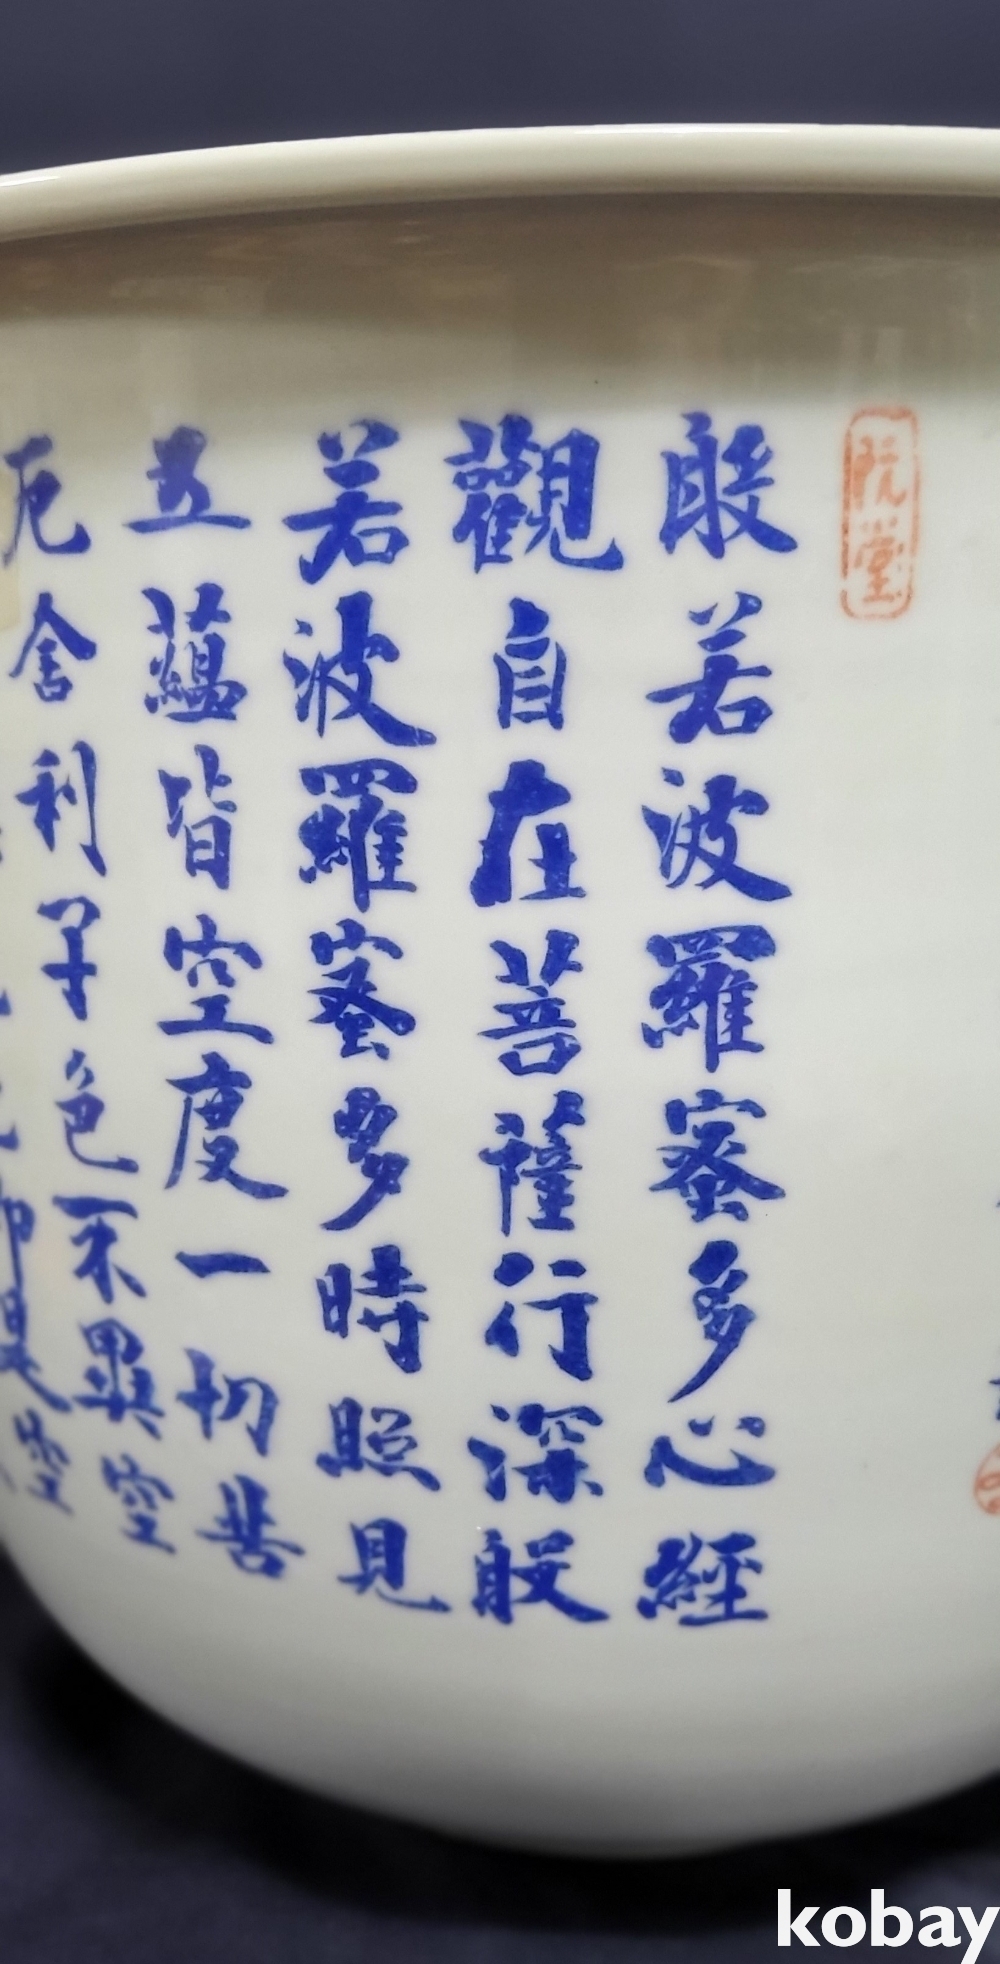 阮堂
般若波羅蜜多心經
觀自在菩薩行深般
若波羅蜜多時照見
五蘊皆空度一切苦
厄舍利子色不異空
即是空
kobay